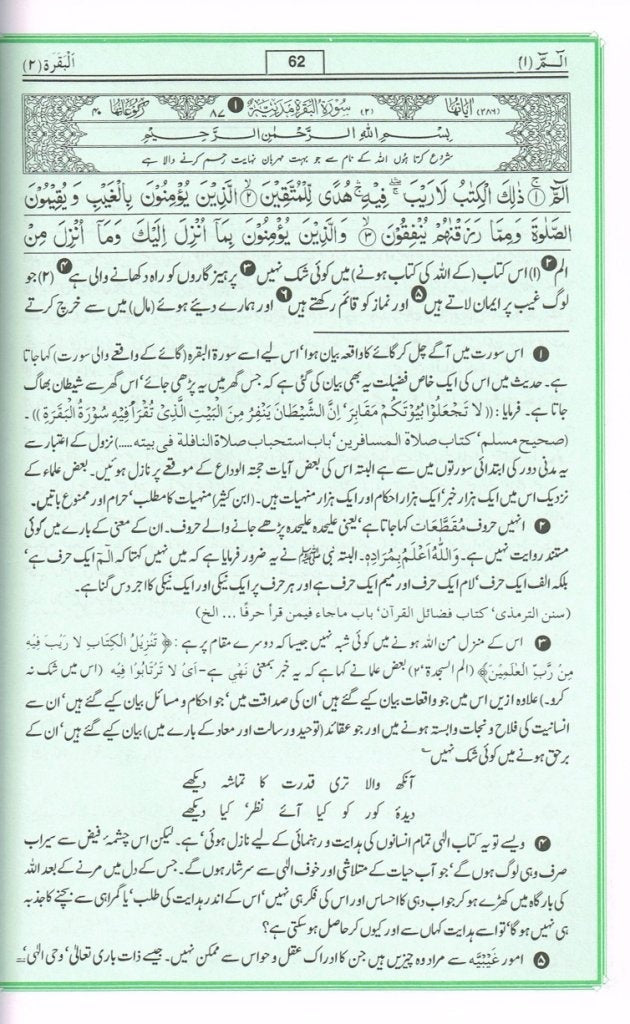 الٓمّٓ (۱)
62
اَلْبَقَرَة (۲)
(۲۸۶) اٰیَاتُهَا (۲) سُوْرَةُ الْبَقَرَةِ مَدَنِیَّةٌ ❶ ۸۷ رُكُوْعَاتُهَا ۴۰
بِسْمِ اللهِ الرَّحْمٰنِ الرَّحِيْمِ
شروع کرتا ہوں اللہ کے نام سے جو بہت مہربان نہایت رحم کرنے والا ہے
الٓمّٓ ۱ ذٰلِكَ الْكِتٰبُ لَا رَيْبَ فِيْهِ هُدًى لِّلْمُتَّقِيْنَ ۲ الَّذِيْنَ يُؤْمِنُوْنَ بِالْغَيْبِ وَيُقِيْمُوْنَ
الصَّلٰوةَ وَمِمَّا رَزَقْنٰهُمْ يُنْفِقُوْنَ ۳ وَالَّذِيْنَ يُؤْمِنُوْنَ بِمَآ اُنْزِلَ اِلَيْكَ وَمَآ اُنْزِلَ مِنْ
الم ❷ (۱) اس کتاب (کے اللہ کی کتاب ہونے) میں کوئی شک نہیں ❸ پرہیز گاروں کو راہ دکھانے والی ہے ❹ (۲) جو
لوگ غیب پر ایمان لاتے ہیں ❺ اور نماز کو قائم رکھتے ہیں ❻ اور ہمارے دیئے ہوئے (مال) میں سے خرچ کرتے
❶ اس سورت میں آگے چل کر گائے کا واقعہ بیان ہوا' اس لیے اسے سورۃ البقرہ (گائے کے واقعے والی سورت) کہا جاتا
ہے۔ حدیث میں اس کی ایک خاص فضیلت یہ بھی بیان کی گئی ہے کہ جس گھر میں یہ پڑھی جائے' اس گھر سے شیطان بھاگ
جاتا ہے۔ فرمایا : ((لا تَجْعَلُوْا بُيُوْتَكُمْ مَقَابِرَ' اِنَّ الشَّيْطَانَ يَنْفِرُ مِنَ الْبَيْتِ الَّذِيْ تُقْرَأُ فِيْهِ سُوْرَةُ الْبَقَرَةِ))۔
(صحيح مسلم' كتاب صلاة المسافرين' باب استحباب صلاة النافلة فى بيته.....) نزول کے اعتبار سے
یہ مدنی دور کی ابتدائی سورتوں میں سے ہے البتہ اس کی بعض آیات حجۃ الوداع کے موقعے پر نازل ہوئیں۔ بعض علماء کے
نزدیک اس میں ایک ہزار خبر' ایک ہزار احکام اور ایک ہزار منہیات ہیں۔ (ابن کثیر) منہیات کا مطلب' حرام اور ممنوع باتیں۔
❷ انہیں حروف مُقَطَّعَات کہا جاتا ہے' یعنی علیحدہ علیحدہ پڑھے جانے والے حروف۔ ان کے معنی کے بارے میں کوئی
مستند روایت نہیں ہے۔ وَاللهُ اَعْلَمُ بِمُرَادِهٖ۔ البتہ نبی ﷺ نے یہ ضرور فرمایا ہے کہ میں نہیں کہتا کہ الٓم ایک حرف ہے'
بلکہ الف ایک حرف' لام ایک حرف اور میم ایک حرف ہے اور ہر حرف پر ایک نیکی اور ایک نیکی کا اجر دس گنا ہے۔
(سنن الترمذى' كتاب فضائل القرآن' باب ماجاء فيمن قرأ حرفًا ... الخ)
❸ اس کے منزل من اللہ ہونے میں کوئی شبہ نہیں جیسا کہ دوسرے مقام پر ہے : ﴿ تَنْزِيْلُ الْكِتَابِ لَا رَيْبَ فِيْهِ
مِنْ رَّبِّ الْعٰلَمِيْنَ﴾ (الم السجدة'۲) بعض علما نے کہا ہے کہ یہ خبر بمعنی نَهْی ہے- اَیْ لَا تَرْتَابُوْا فِيْهِ (اس میں شک نہ
کرو)۔ علاوہ ازیں اس میں جو واقعات بیان کیے گئے ہیں' ان کی صداقت میں' جو احکام و مسائل بیان کیے گئے ہیں' ان سے
انسانیت کی فلاح و نجات وابستہ ہونے میں اور جو عقائد (توحید و رسالت اور معاد کے بارے میں) بیان کیے گئے ہیں' ان کے
برحق ہونے میں کوئی شک نہیں ؂
آنکھ والا تری قدرت کا تماشہ دیکھے
دیدۂ کور کو کیا آئے نظر' کیا دیکھے
❹ ویسے تو یہ کتاب الٰہی تمام انسانوں کی ہدایت و رہنمائی کے لیے نازل ہوئی' ہے۔ لیکن اس چشمۂ فیض سے سیراب
صرف وہی لوگ ہوں گے' جو آب حیات کے متلاشی اور خوف الٰہی سے سرشار ہوں گے۔ جس کے دل میں مرنے کے بعد اللہ
کی بارگاہ میں کھڑے ہو کر جواب دہی کا احساس اور اس کی فکر ہی نہیں' اس کے اندر ہدایت کی طلب' یا گمراہی سے بچنے کا جذبہ
ہی نہیں ہو گا' تو اسے ہدایت کہاں سے اور کیوں کر حاصل ہو سکتی ہے؟
❺ امور غَيْبِيَّه سے مراد وہ چیزیں ہیں جن کا ادراک عقل و حواس سے ممکن نہیں۔ جیسے ذات باری تعالیٰ' وحی الٰہی'